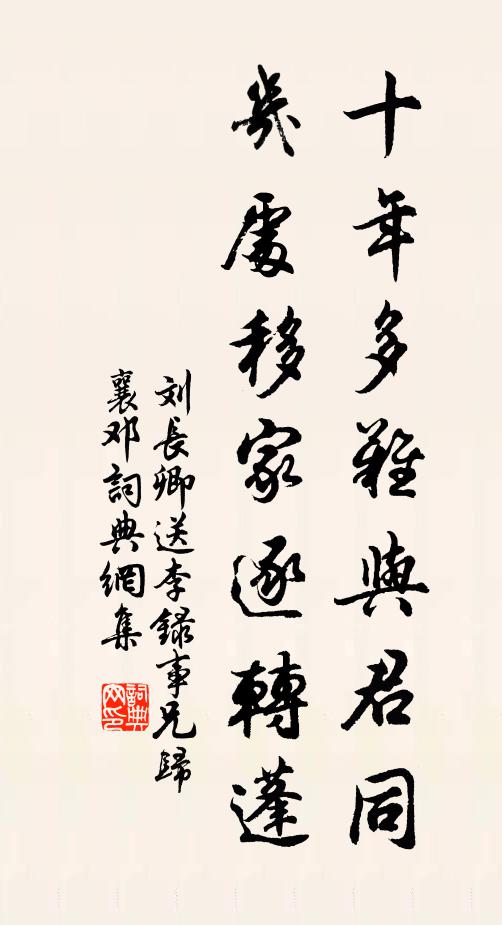 十年多難與君同
幾處移家逐轉蓬
刘長卿送李録事兄歸
襄邓詞典網集
詞典网印